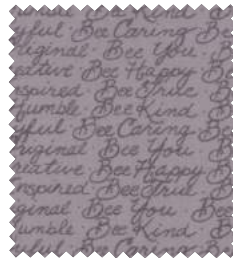 umble · Bee Kind · B
yful · Bee Caring · Be
riginal · Bee You · B
eative · Bee Happy · B
nspired · Bee True · B
umble · Bee Kind · B
yful · Bee Caring · Be
riginal · Bee You · Be
reative · Bee Happy · B
nspired · Bee True · B
ginal · Bee You · Be
umble · Bee Kind · B
yful · Bee Caring · Be